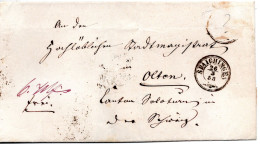 An den
Hochlöblichen Stadtmagistrat
Olten,
Canton Solothurn in
der Schweiz
frei.